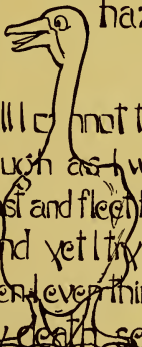 haz
ll I c nnot t
ugh as I w
st and fleet
nd yet I try
en I even thin
death sc